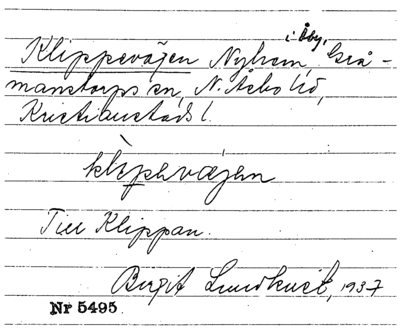 i Åby,
Klippevägen Nyhem, Grå-
manstorps sn, N. Åsbo hd,
Kristianstads l.
klìpevæjen
Till Klippan.
Birgit Lundkvist, 1937
Nr 5495